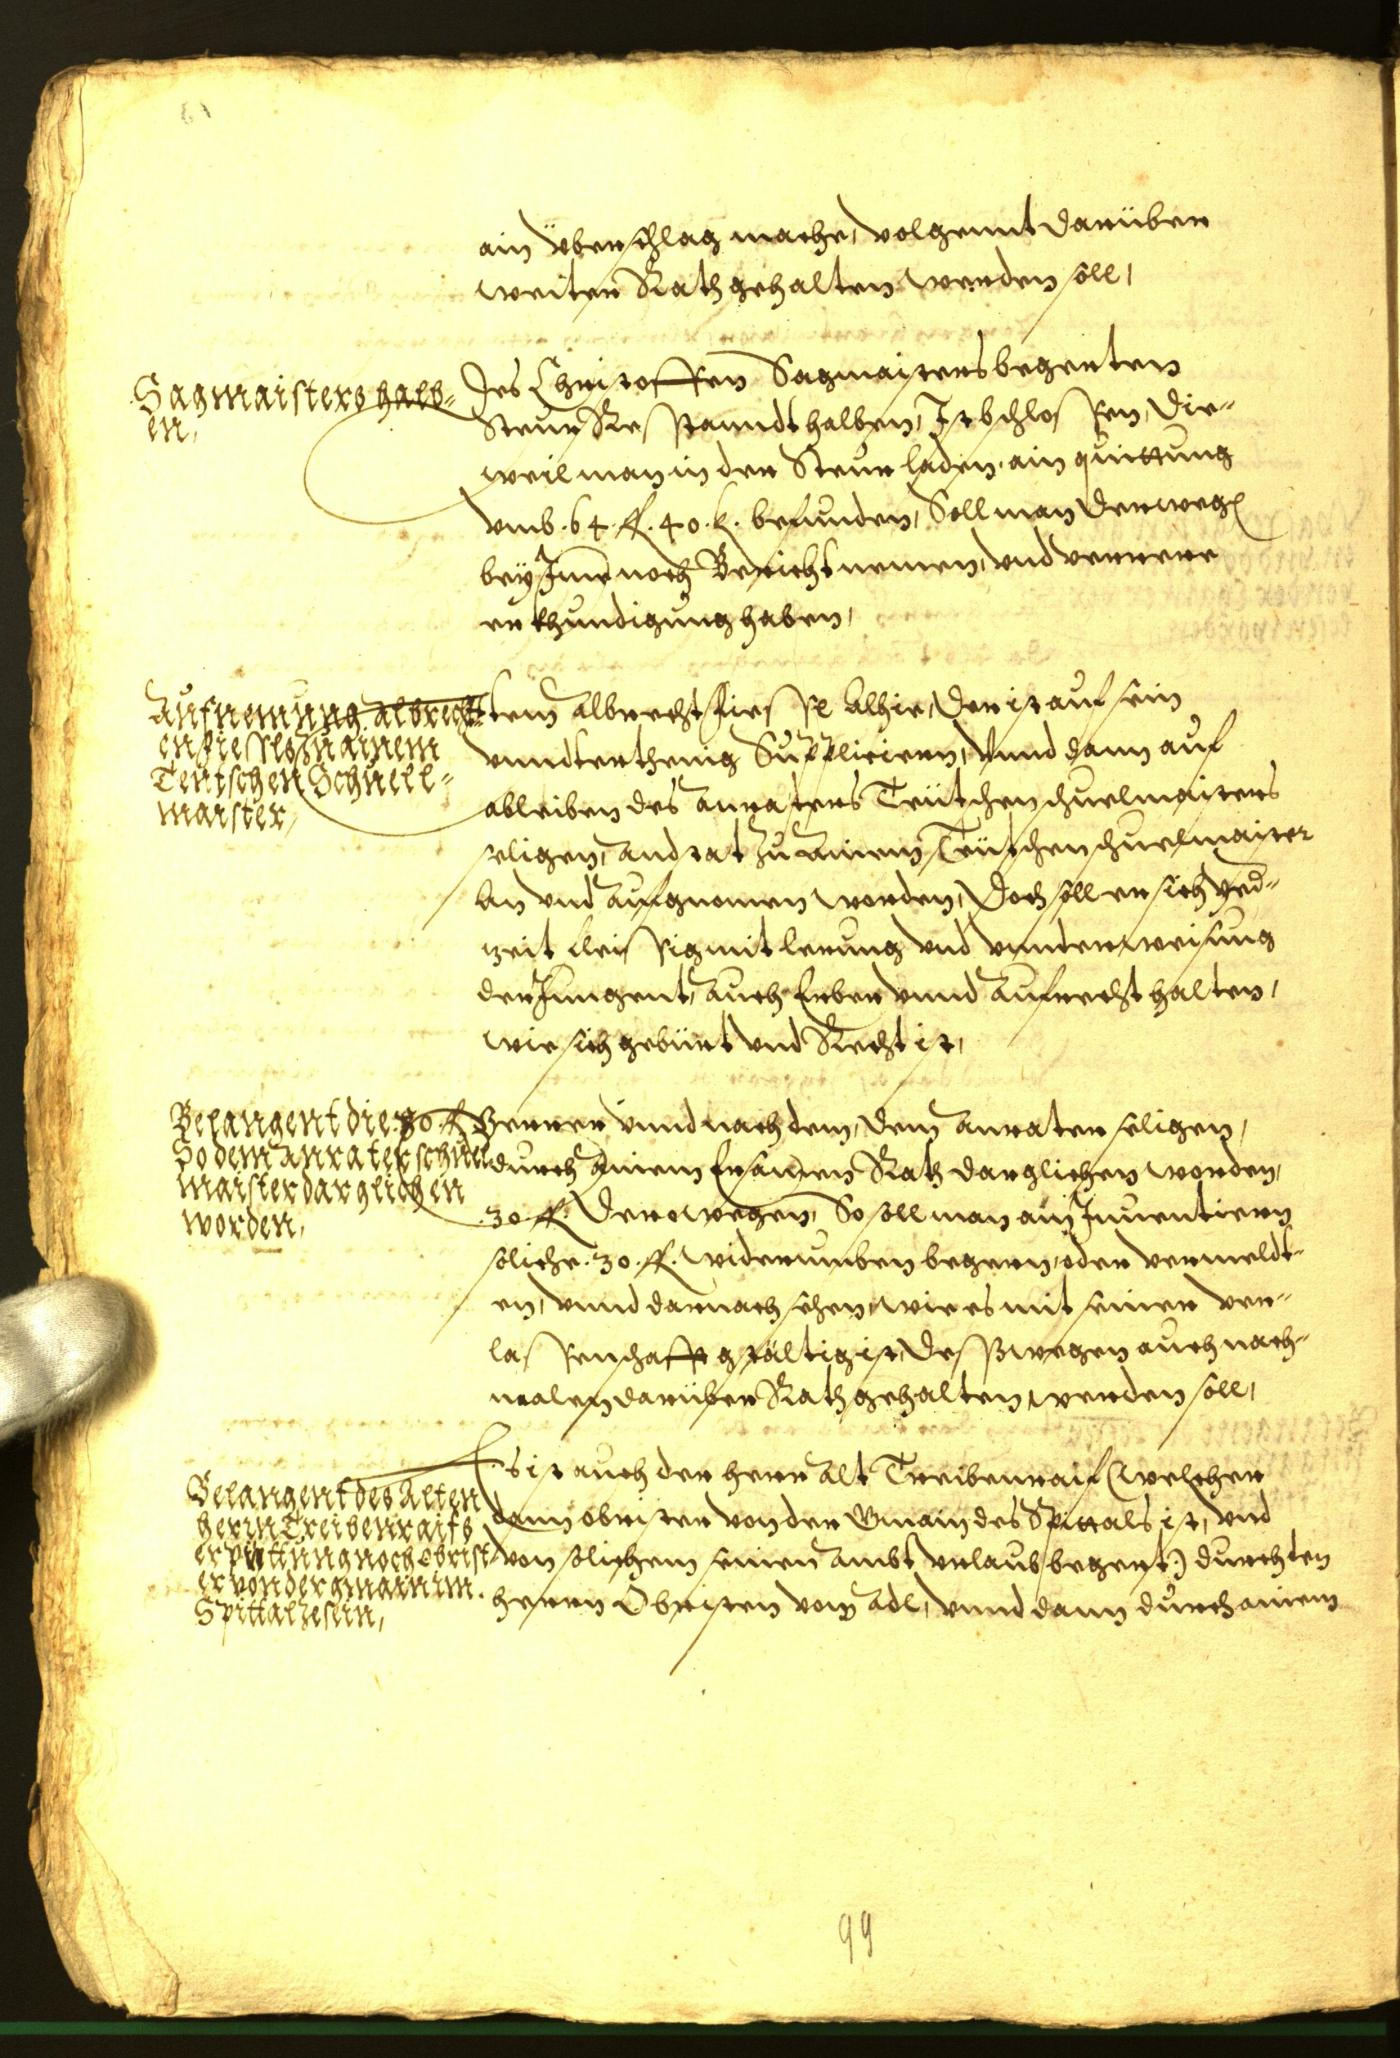 ain überschlag mache, volgennt darüber
weiter Rath gehalten werden soll,
Sagmaisters halb-
en,
Des Christoffen Sagmaisters begerten
Steur Resstanndt halben, Ist bschlossen, Die-
weil man in der Steur laden ain quittung
vmb .64. fl. 40. k. befunden, Soll man derweg
bey Ime noch Bericht nemen, vnd verrere
erkhundigung haben,
Aufnemung Albrecht
en zu ainem
Teutschen Schuell-
maister,
Item Albrecht alhie, Der ist auf sein
vnndterthenig Suppliciern, Vnnd dann auf
ableiben des Anraters Teütschen schuelmaisters
seligen, anstat zu ainem Teütschen schuelmaister
An vnd Aufgnomen worden, Doch soll er sich yed-
zeit fleissig mit lernung vnd vnnterweisung
der Jungent, auch Erber vnnd Aufrecht halten,
wie sich gebürt vnd Recht ist,
Belangent die .30. fl
So dem Anrater schuel
maister darglichen
worden,
Ferrer vnnd nach dem, dem Anrater seligen,
durch ainem Ersamen Rath darglichen worden,
.30. fl. Derowegen, So soll man ain Inuentiern
soliche .30. fl. widerumben begern, oder vermeldt-
en, vnnd darnach sehen, wie es mit seiner ver-
lassenschafft gstältig ist, Desswegen auch nach-
malen darüber Rath gehalten, werden soll,
Belangent des Alten
herrn Treibenraifs
er pittung noch Obrist
er von der gmain im
Spittal zesein,
Es ist auch der herr Alt Treibenraif (welcher
dann obrister von der Gmain des Spittals ist, vnd
von solichem seinen Ambt vrlaub begert) durch den
herrn Obristen vom Adl, vnnd dann durch ainem
99